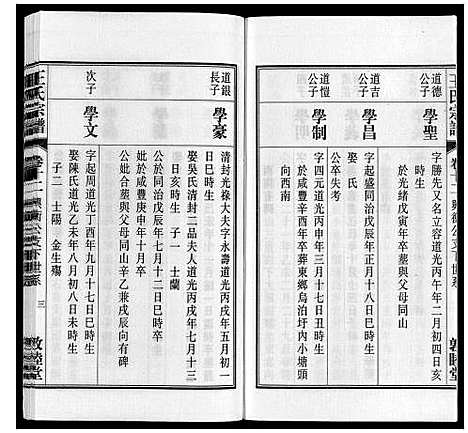 王氏宗譜
卷十二
道德公子
學聖
字勝先又名立容道光丙午年二月初四日亥
時生
於光緒戊寅年卒墓與父母同山
道吉公子
學昌
字起盛同治戊辰年正月十八日巳時生
娶氏
公卒失考
道愷公子
學制
字四元道光申年三月十七日丑時生
於咸豐辛酉年卒葬東鄉烏泊圩內小塘頭
向西南
道銀長子
學豪
清封光祿大夫字永壽道光丙戌年五月初一
日巳時生
娶吳氏清封一品夫人道光丙戌年七月十三
日亥時生 子一 士蘭
公於同治庚戌年七月十二日巳時卒
妣歿咸豐庚申年十月卒
公妣合墓與父母同山辛乙兼戌辰向有碑
次子
學文
字起周道光丁酉年九月十七日巳時生
娶陳氏道光乙未年八月初八日未時生
子二 士陽 金生殤
王氏宗譜
卷十二
三
敦睦堂